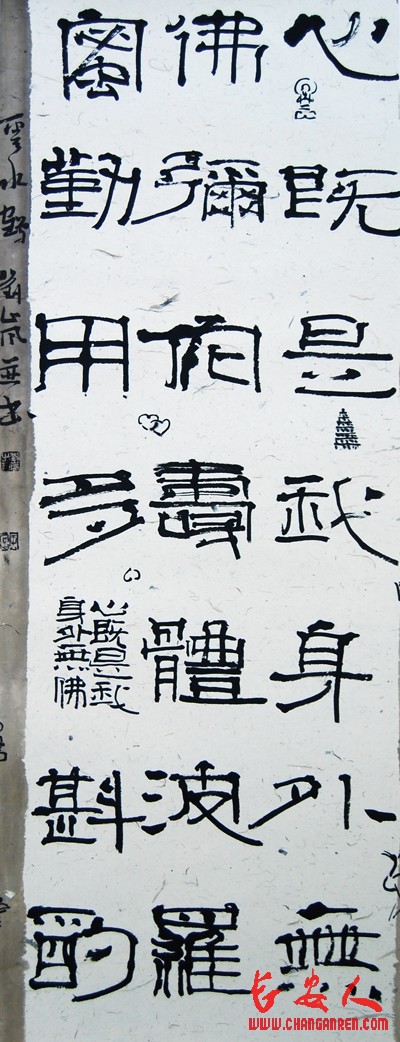 心既是我身外無
佛彌佗壽體波羅
蜜勤用多斟酌
心既是我
身外無佛
雲水
长安人
WWW.CHANGANREN.COM